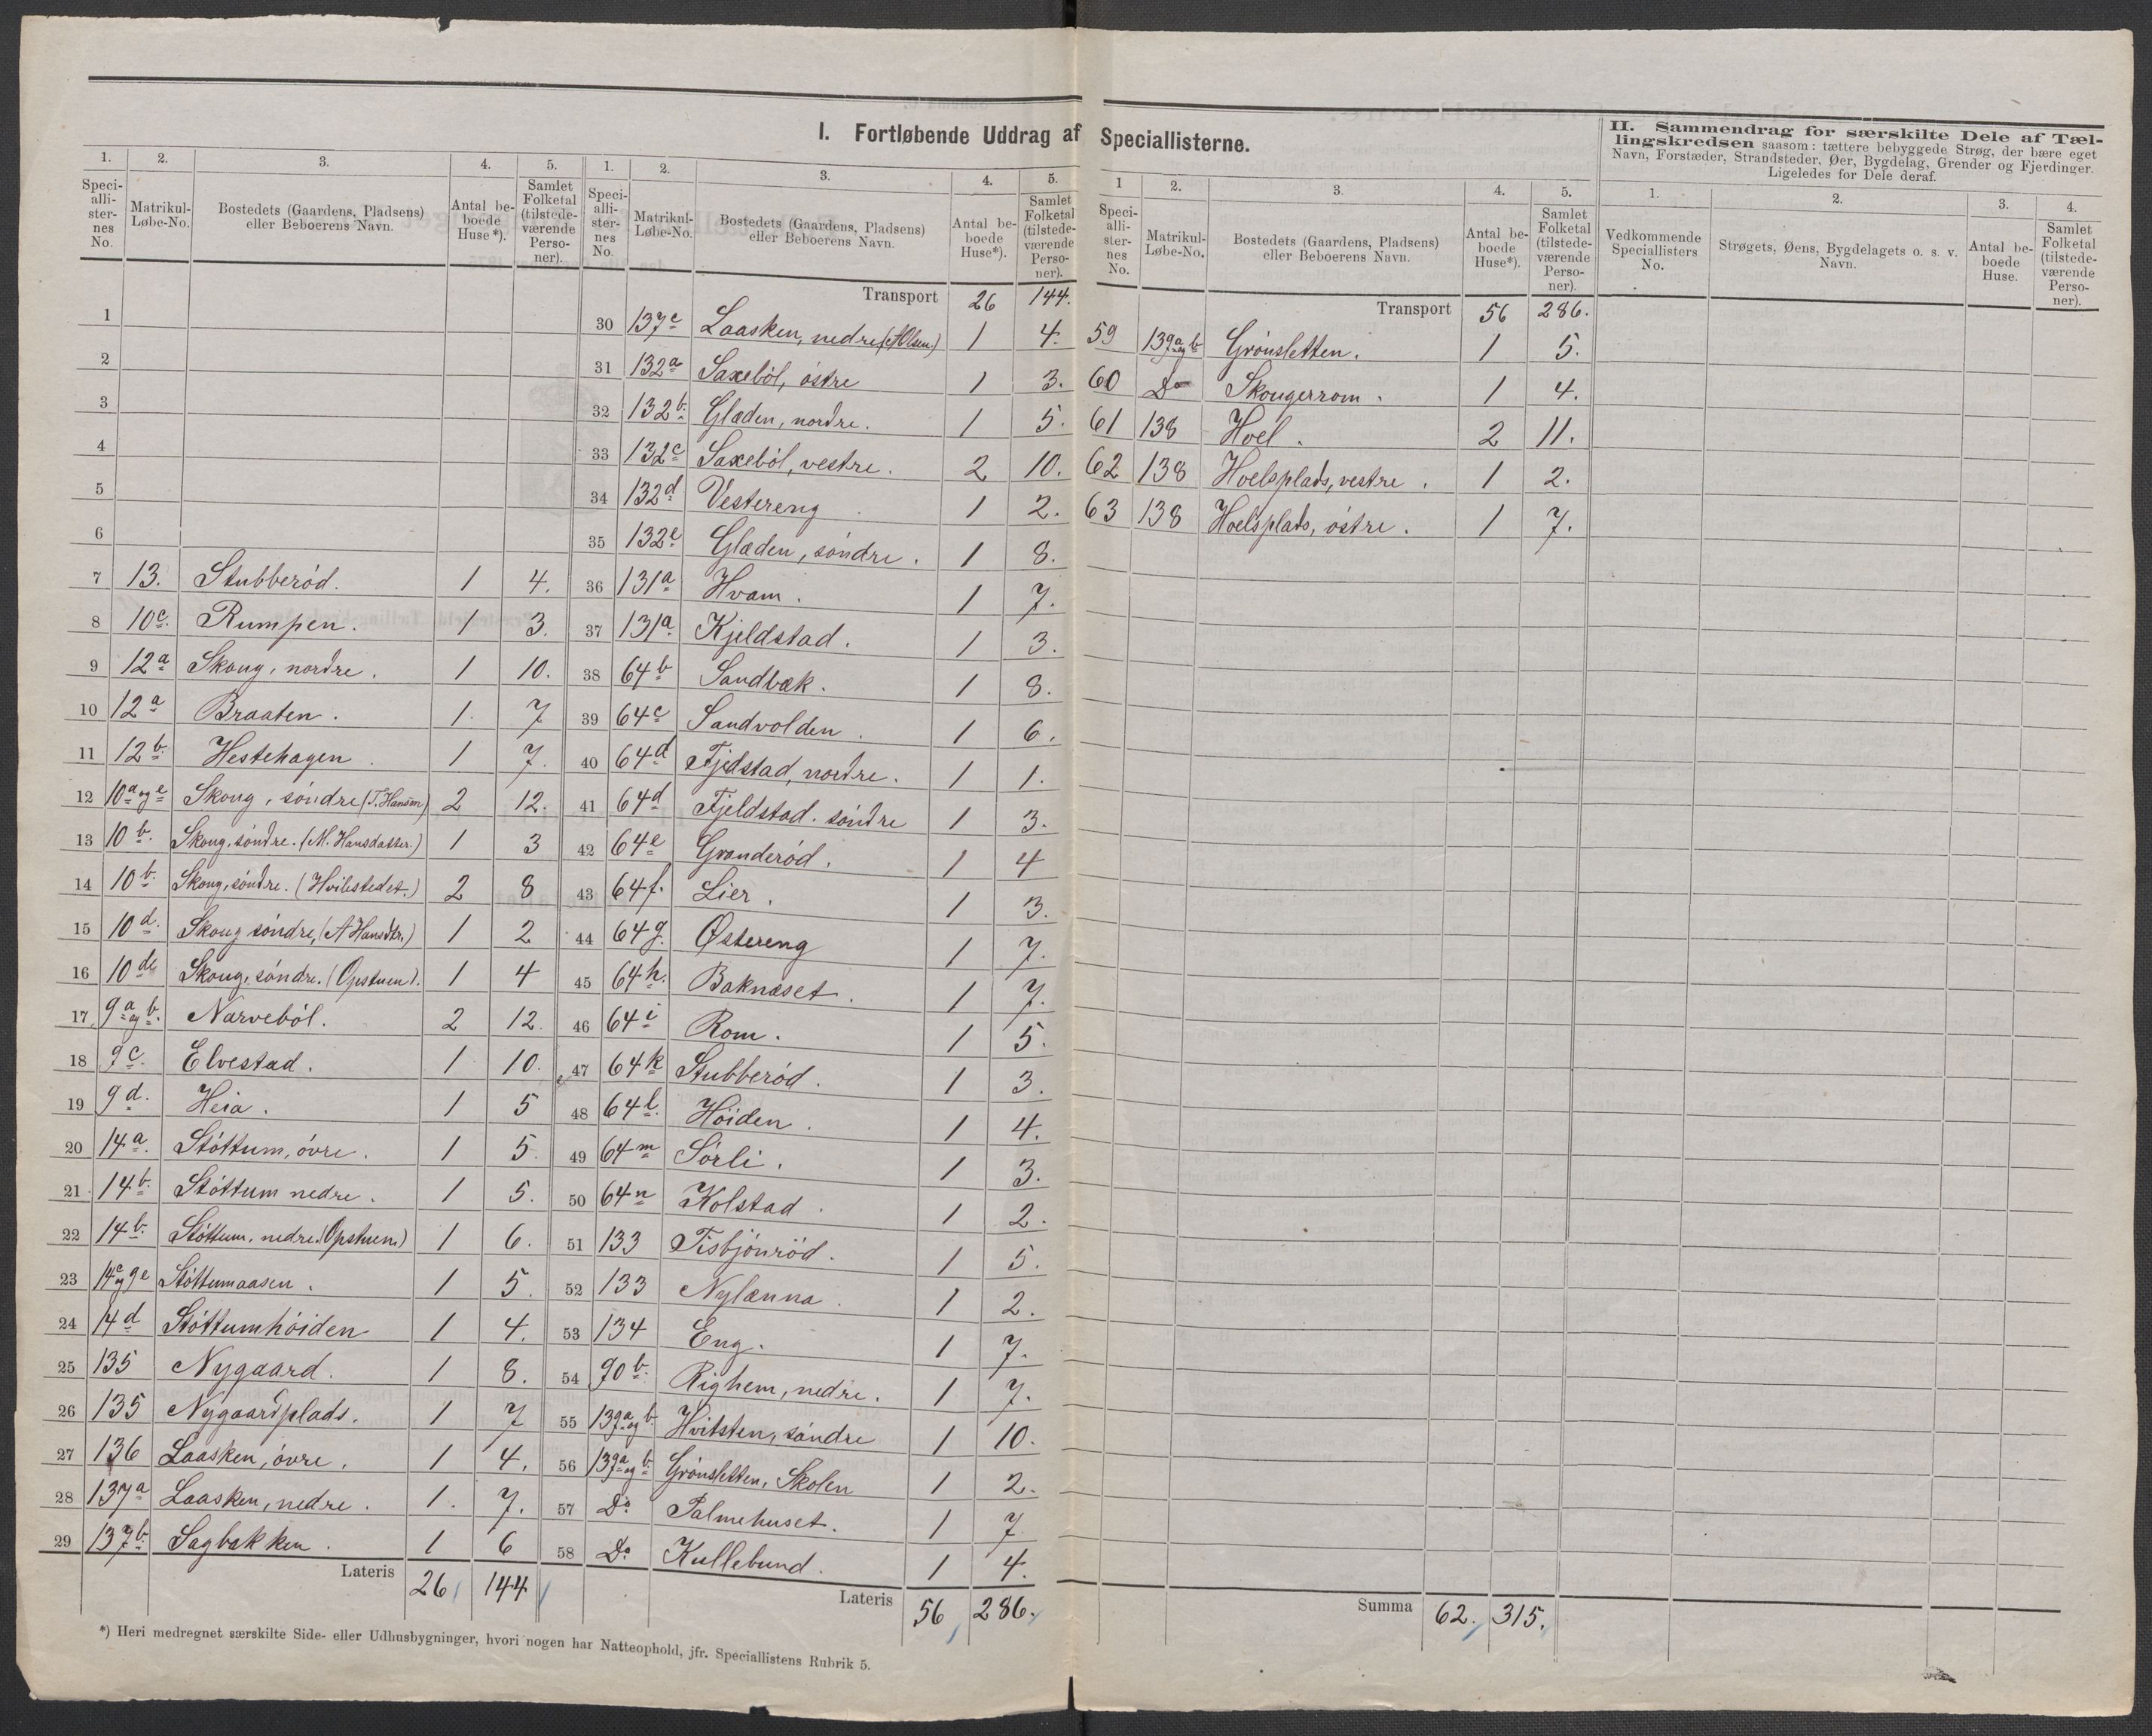 I. Fortløbende Uddrag af Speciallisterne.
1. 2. 3. 4. 5.
Speciallisternes No. Matrikul-Løbe-No. Bostedets (Gaardens, Pladsens) eller Beboerens Navn. Antal beboede Huse*). Samlet Folketal (tilstedeværende Personer).
1
2
3
4
5
6
7 13. Stubberód. 1 4.
8 10c. Rumpen. 1 3.
9 12a Skoug, nordre. 1 10.
10 12a Braaten. 1. 7
11 12b. Hestehagen. 1 7.
12 10a og e Skoug, söndre (T. Hansen) 2 12.
13 10b. Skoug, söndre. (M. Hansdatter.) 1 3
14 10b. Skoug, söndre. (Hvilestedet.) 2 8
15 10d. Skoug söndre, (A Hansdtr.) 1 2
16 10d Skoug, söndre. (Opstuen). 1 4
17 9a og b. Narveból. 2 12.
18 9c. Elvestad. 1 10.
19 9d. Heia. 1 5
20 14a. Stóttum, óvre. 1 5.
21 14b. Stóttum nedre. 1 5.
22 14b. Stóttum, nedre. (Opstuen) 1 6.
23 14c og 9e Stóttumaasen. 1 5.
24 14d Stóttumhóiden 1 4.
25 135 Nygaard. 1 8.
26 135 Nygaardplads. 1 7
27 136 Laasken, óvre. 1 4.
28 137a Laasken, nedre. 1. 7.
29 137b. Sagbakken. 1 6
Lateris 26 144
1. 2. 3. 4. 5.
Speciallisternes No. Matrikul-Løbe-No. Bostedets (Gaardens, Pladsens) eller Beboerens Navn. Antal beboede Huse*). Samlet Folketal (tilstedeværende Personer).
Transport 26 144.
30 137c Laasken, nedre (A Olsen.) 1 4.
31 132a Saxeból, óstre 1 3.
32 132b. Glæden, nordre. 1 5.
33 132c Saxeból, vestre. 2 10.
34 132d Vestereng 1 2.
35 132e Glæden, söndre. 1 8.
36 131a Hvam. 1 7.
37 131a. Kjeldstad. 1 3.
38 64b Sandbæk. 1 8.
39 64c Sandvolden. 1 6.
40 64d Fjeldstad, nordre. 1 1.
41 64d Fjeldstad. söndre 1 3.
42 64e Granderód. 1 4
43 64f. Lier. 1 3.
44 64g. Östereng 1 7.
45 64h. Baknæset. 1 7.
46 64i Rom. 1 5.
47 64k Stubberód. 1 3.
48 64l. Höiden. 1 4.
49 64m Sórli. 1 3.
50 64n Kolstad. 1 2.
51 133 Tisbjónröd. 1 5.
52 133 Nylænna. 1 2.
53 134 Eng. 1 7.
54 90b. Righem, nedre. 1 7.
55 139a og b. Hvitsten, söndre 1 10.
56 139a og b. Grónsletten, Skolen 1 2.
57 Do. Palmehuset. 1 7.
58 Do Kullebund. 1 4.
Lateris 56 286.
1 2. 3. 4. 5.
Speciallisternes No. Matrikul-Løbe-No. Bostedets (Gaardens, Pladsens) eller Beboerens Navn. Antal beboede Huse*). Samlet Folketal (tilstedeværende Personer).
Transport 56 286.
59 139a og b Grónsletten. 1 5.
60 Do Skougerrom. 1 4.
61 138 Hoel. 2 11.
62 138 Hoelsplads, vestre. 1 2.
63 138 Hoelsplads, óstre. 1 7.
Summa 62. 315.
II. Sammendrag for særskilte Dele af Tællingskredsen saasom: tættere bebyggede Strøg, der bære eget Navn, Forstæder, Strandsteder, Øer, Bygdelag, Grender og Fjerdinger. Ligeledes for Dele deraf.
1. 2. 3. 4.
Vedkommende Speciallisters No. Strøgets, Øens, Bygdelagets o. s. v. Navn. Antal beboede Huse. Samlet Folketal (tilstedeværende Personer).
*) Heri medregnet særskilte Side- eller Udhusbygninger, hvori nogen har Natteophold, jfr. Speciallistens Rubrik 5.